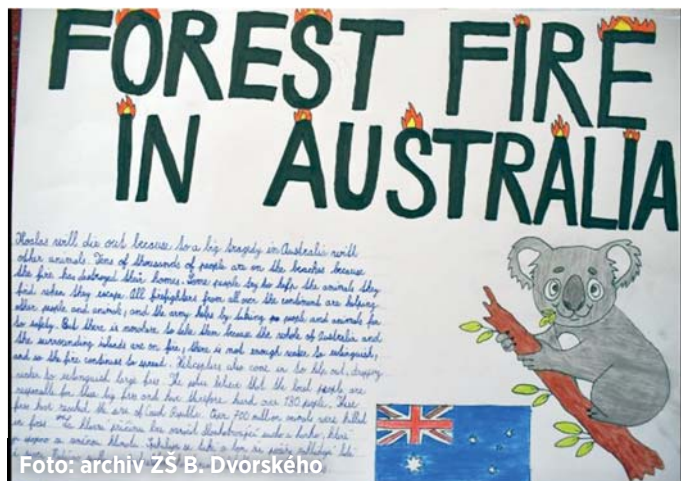 FOREST FIRE
IN AUSTRALIA
Koalas will die out because to a big tragedy in Australia with
other animals. Tens of thousands of people are on the beaches because
the fire has destroyed their homes. Some people try to help the animals they
find when they escape. All firefighters from all over the continent are helping
other people and animals, and the army helps by taking people and animals far
to safety. But there is nowhere to take them because the whole of Australia and
the surrounding islands are on fire, there is not enough water to extinguish,
and so the fire continues to spread. Helicopters also come in to help out, dropping
water to extinguish large fires. The police believe that the local people are
responsible for these big fires and have therefore over 180 people. These
fires have reached the size of Czech Republic. Over 700 million animals were killed
in fires
Foto: archiv ZŠ B. Dvorského